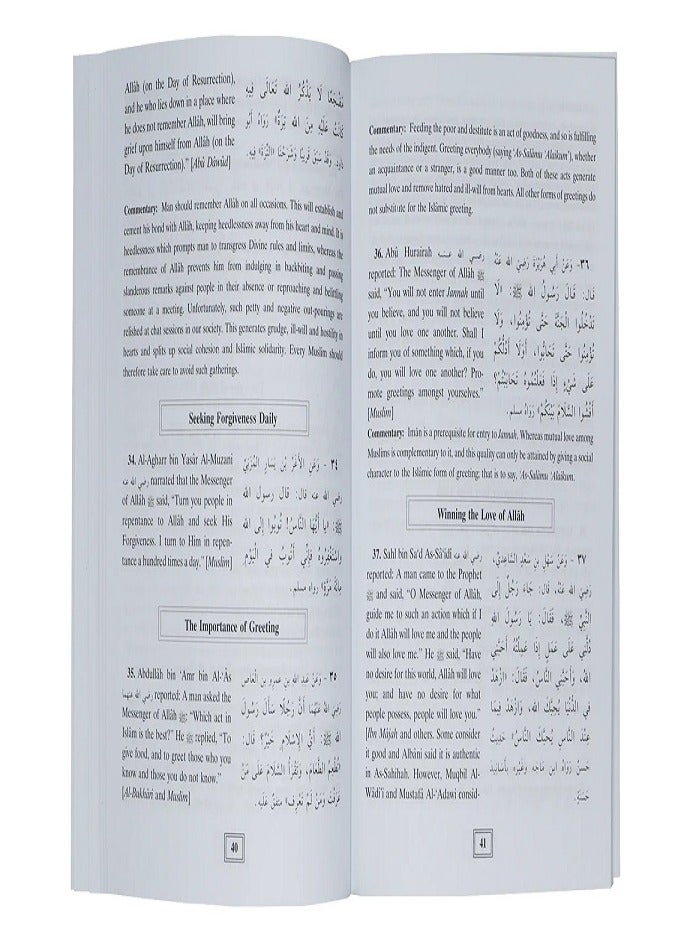 Allâh (on the Day of Resurrection),
and he who lies down in a place where
he does not remember Allâh, will bring
grief upon himself from Allâh (on the
Day of Resurrection)." [Abû Dâwûd]
مُضْجَعًا لَا يَذْكُرُ الله تَعَالَى فِيهِ
كَانَتْ عَلَيْهِ مِنَ اللهِ تِرَةٌ» رَوَاهُ أَبُو
دَاوُدَ. وَقَدْ سَبَقَ قَرِيبًا وَشَرَحْنَا «التِّرَةَ» فِيهِ.
Commentary: Man should remember Allâh on all occasions. This will establish and
cement his bond with Allâh, keeping heedlessness away from his heart and mind. It is
heedlessness which prompts man to transgress Divine rules and limits, whereas the
remembrance of Allâh prevents him from indulging in backbiting and passing
slanderous remarks against people in their absence or reproaching and belittling
someone at a meeting. Unfortunately, such petty and negative out-pourings are
relished at chat sessions in our society. This generates grudge, ill-will and hostility in
hearts and splits up social cohesion and Islâmic solidarity. Every Muslim should
therefore take care to avoid such gatherings.
Seeking Forgiveness Daily
34. Al-Agharr bin Yasâr Al-Muzani
رضي الله عنه narrated that the Messenger
of Allâh ﷺ said, "Turn you people in
repentance to Allâh and seek His
Forgiveness. I turn to Him in repen-
tance a hundred times a day." [Muslim]
٣٤ - وَعَنِ الأَغَرِّ بْنِ يَسَارٍ المُزَنِيِّ
رضي الله عنه قال: قال رسول الله
ﷺ: «يا أَيُّهَا النَّاسُ! تُوبُوا إِلَى اللهِ
وَاسْتَغْفِرُوهُ فَإِنِّي أَتُوبُ فِي الْيَوْمِ
مِائَةَ مَرَّةٍ» رواه مسلم.
The Importance of Greeting
35. Abdullâh bin 'Amr bin Al-'Âs
رضي الله عنهما reported: A man asked the
Messenger of Allâh ﷺ: "Which act in
Islâm is the best?" He ﷺ replied, "To
give food, and to greet those who you
know and those you do not know."
[Al-Bukhâri and Muslim]
٣٥ - وَعَنْ عبد الله بن عمرو بن العاص
رَضِيَ اللهُ عَنْهُمَا أَنَّ رَجُلًا سَأَلَ رَسُولَ
اللهِ ﷺ: أَيُّ الإِسْلَامِ خَيْرٌ؟ قال:
«تُطْعِمُ الطَّعَامَ، وَتَقْرَأُ السَّلَامَ عَلَى مَنْ
عَرَفْتَ وَمَنْ لَمْ تَعْرِفْ» متفق عَلَيهِ.
40
Commentary: Feeding the poor and destitute is an act of goodness, and so is fulfilling
the needs of the indigent. Greeting everybody (saying 'As-Salâmu 'Alaikum'), whether
an acquaintance or a stranger, is a good manner too. Both of these acts generate
mutual love and remove hatred and ill-will from hearts. All other forms of greetings do
not substitute for the Islâmic greeting.
36. Abû Hurairah رضي الله عنه
reported: The Messenger of Allâh ﷺ
said, "You will not enter Jannah until
you believe, and you will not believe
until you love one another. Shall I
inform you of something which, if you
do, you will love one another? Pro-
mote greetings amongst yourselves."
[Muslim]
٣٦- وَعَنْ أَبِي هُرَيْرَةَ رَضِيَ اللهُ عَنْهُ
قَالَ: قَالَ رَسُولُ اللهِ ﷺ: «لَا
تَدْخُلُوا الْجَنَّةَ حَتَّى تُؤْمِنُوا، وَلَا
تُؤْمِنُوا حَتَّى تَحَابُّوا، أَوَلَا أَدُلُّكُمْ
عَلَى شَيْءٍ إِذَا فَعَلْتُمُوهُ تَحَابَبْتُمْ؟
أَفْشُوا السَّلَامَ بَيْنَكُمْ» رَوَاهُ مسلم.
Commentary: Imân is a prerequisite for entry to Jannah. Whereas mutual love among
Muslims is complementary to it, and this quality can only be attained by giving a social
character to the Islâmic form of greeting; that is to say, 'As-Salâmu 'Alaikum.
Winning the Love of Allâh
37. Sahl bin Sa'd As-Sâ'idî رضي الله عنه
reported: A man came to the Prophet
ﷺ and said, "O Messenger of Allâh,
guide me to such an action which if I
do it Allâh will love me and the people
will also love me." He ﷺ said, "Have
no desire for this world, Allâh will love
you; and have no desire for what
people possess, people will love you."
[Ibn Mâjah and others. Some consider
it good and Albâni said it is authentic
in As-Sahihah. However, Muqbil Al-
Wâdi'î and Mustafâ Al-'Adawi consid-
٣٧ - وَعَنْ سَهْلِ بْنِ سَعْدٍ السَّاعِدِيِّ،
رَضِيَ اللهُ عَنْهُ، قَالَ: جَاءَ رَجُلٌ إِلَى
النَّبِيِّ ﷺ، فَقَالَ: يَا رَسُولَ اللهِ
دُلَّنِي عَلَى عَمَلٍ إِذَا عَمِلْتُهُ أَحَبَّنِي
اللهُ، وَأَحَبَّنِي النَّاسُ، فَقَالَ: «ازْهَدْ
فِي الدُّنْيَا يُحِبَّكَ اللهُ، وَازْهَدْ فِيمَا
عِنْدَ النَّاسِ يُحِبَّكَ النَّاسُ» حَدِيثٌ
حَسَنٌ رَوَاهُ ابن مَاجَه وغَيْرُه بِأَسَانِيدَ
حَسَنَةٍ.
41